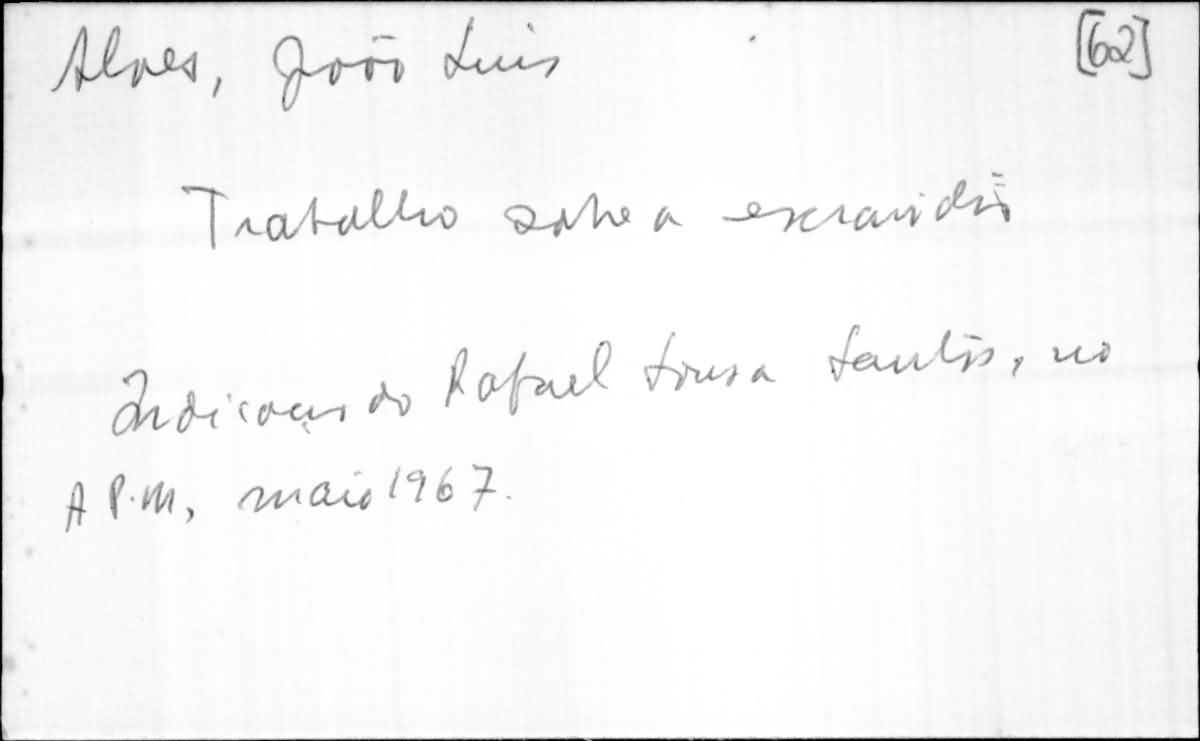 Alves, João Luis [62]
Trabalho sobre a escravidão
Indicação do Rafael Sousa Santos, no
A P.M, maio 1967.